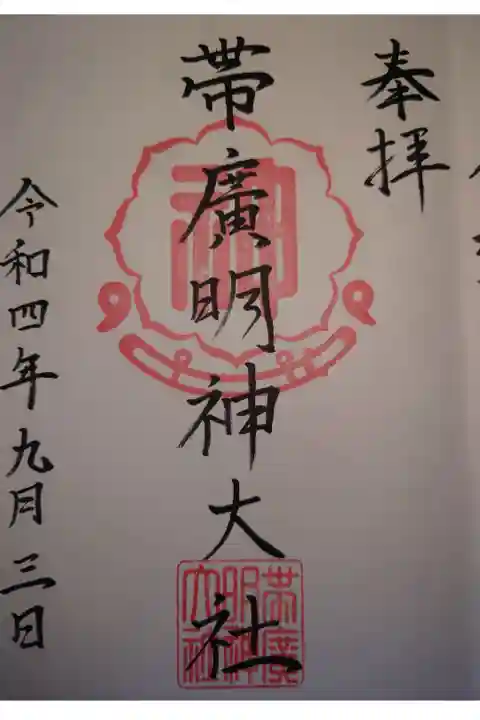 奉拝
帯廣明神大社
令和四年九月三日
帯廣
明神
大社